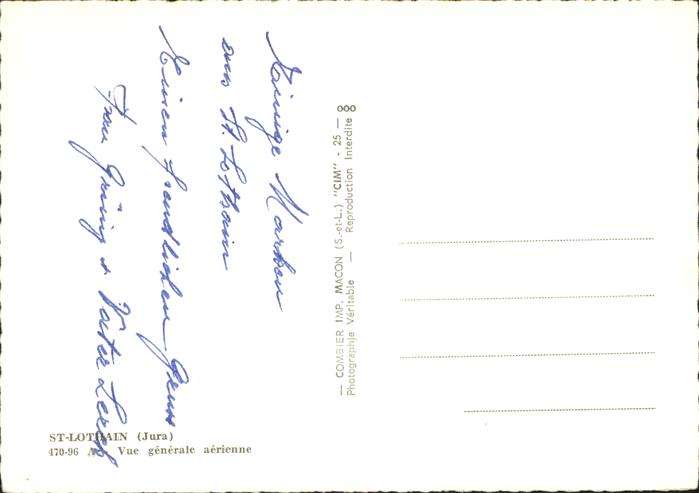 aus St. Lothain
Einen freundlichen Gruss
Frau
— COMBIER IMP. MACON (S.-et-L.) "CIM" - 25 — 000
Photographie Véritable — Reproduction Interdite
ST-LOTHAIN (Jura)
470-96 A. Vue générale aérienne